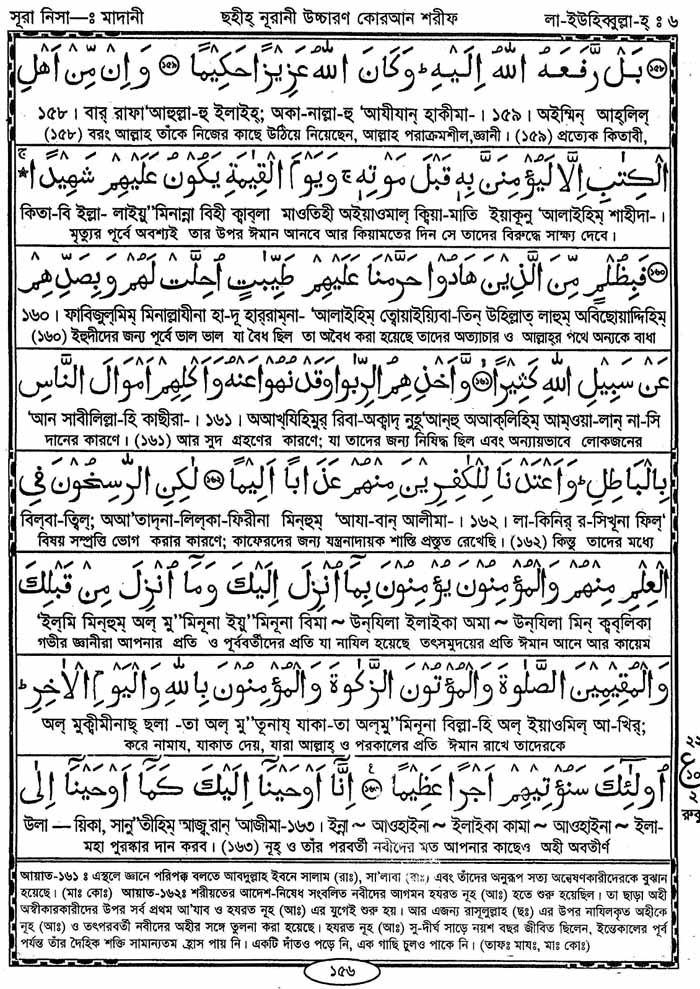 সূরা নিসা—ঃ মাদানী ছহীহ্ নূরানী উচ্চারণ কোরআন শরীফ লা-ইউহিব্বুল্লা-হ্ ঃ ৬
১৫৮ بَلْ رَّفَعَهُ اللهُ اِلَيْهِ ؕ وَكَانَ اللهُ عَزِيْزًا حَكِيْمًا ১৫৯ وَاِنْ مِّنْ اَهْلِ
১৫৮। বার্ রাফা‘আহুল্লা-হু ইলাইহ্; অকা-নাল্লা-হু ‘আযীযান্ হাকীমা-। ১৫৯। অইম্মিন্ আহ্লিল্
(১৫৮) বরং আল্লাহ তাঁকে নিজের কাছে উঠিয়ে নিয়েছেন, আল্লাহ পরাক্রমশীল,জ্ঞানী। (১৫৯) প্রত্যেক কিতাবী,
الْكِتٰبِ اِلَّا لَيُؤْمِنَنَّ بِهٖ قَبْلَ مَوْتِهٖ ۚ وَيَوْمَ الْقِيٰمَةِ يَكُوْنُ عَلَيْهِمْ شَهِيْدًا
কিতা-বি ইল্লা- লাইয়ু’’মিনান্না বিহী ক্বাব্লা মাওতিহী অইয়াওমাল্ ক্বিয়া-মাতি ইয়াকূনু ‘আলাইহিম্ শাহীদা-।
মৃত্যুর পূর্বে অবশ্যই তার উপর ঈমান আনবে আর কিয়ামতের দিন সে তাদের বিরুদ্ধে সাক্ষ্য দেবে।
১৬০ فَبِظُلْمٍ مِّنَ الَّذِيْنَ هَادُوْا حَرَّمْنَا عَلَيْهِمْ طَيِّبٰتٍ اُحِلَّتْ لَهُمْ وَبِصَدِّهِمْ
১৬০। ফাবিজুল্মিম্ মিনাল্লাযীনা হা-দূ হার্রাম্না- ‘আলাইহিম্ ত্বোয়াইয়্যিবা-তিন্ উহিল্লাত্ লাহুম্ অবিছোয়াদ্দিহিম্
(১৬০) ইহুদীদের জন্য পূর্বে ভাল ভাল যা বৈধ ছিল তা অবৈধ করা হয়েছে তাদের অত্যাচার ও আল্লাহ্র পথে অন্যকে বাধা
عَنْ سَبِيْلِ اللهِ كَثِيْرًا ১৬১ وَّاَخْذِهِمُ الرِّبٰوا وَقَدْ نُهُوْا عَنْهُ وَاَكْلِهِمْ اَمْوَالَ النَّاسِ
‘আন সাবীলিল্লা-হি কাছীরা-। ১৬১। অআখ্যিহিমুর্ রিবা-অক্বাদ্ নুহূ‘আন্হু অআক্লিহিম্ আম্ওয়া-লান্ না-সি
দানের কারণে। (১৬১) আর সুদ গ্রহণের কারণে; যা তাদের জন্য নিষিদ্ধ ছিল এবং অন্যায়ভাবে লোকজনের
بِالْبَاطِلِ ؕ وَاَعْتَدْنَا لِلْكٰفِرِيْنَ مِنْهُمْ عَذَابًا اَلِيْمًا ১৬২ لٰكِنِ الرّٰسِخُوْنَ فِى
বিল্বা-ত্বিল্; অআ‘তাদ্না-লিল্কা-ফিরীনা মিন্হুম্ ‘আযা-বান্ আলীমা-। ১৬২। লা-কিনির্ র-সিখূনা ফিল্
বিষয় সম্পত্তি ভোগ করার কারণে; কাফেরদের জন্য যন্ত্রনাদায়ক শাস্তি প্রস্তুত রেখেছি। (১৬২) কিন্তু তাদের মধ্যে
الْعِلْمِ مِنْهُمْ وَالْمُؤْمِنُوْنَ يُؤْمِنُوْنَ بِمَآ اُنْزِلَ اِلَيْكَ وَمَآ اُنْزِلَ مِنْ قَبْلِكَ
‘ইল্মি মিন্হুম্ অল্ মু’’মিনূনা ইয়ু’’মিনূনা বিমা ~ উন্যিলা ইলাইকা অমা ~ উন্যিলা মিন্ ক্বব্লিকা
গভীর জ্ঞানীরা আপনার প্রতি ও পূর্ববর্তীদের প্রতি যা নাযিল হয়েছে তৎসমুদয়ের প্রতি ঈমান আনে আর কায়েম
وَالْمُقِيْمِيْنَ الصَّلٰوةَ وَالْمُؤْتُوْنَ الزَّكٰوةَ وَالْمُؤْمِنُوْنَ بِاللهِ وَالْيَوْمِ الْاٰخِرِ ؕ
অল্ মুক্বীমীনাছ্ ছলা -তা অল্ মু’’তূনায্ যাকা-তা অল্মু’’মিনূনা বিল্লা-হি অল্ ইয়াওমিল্ আ-খির্;
করে নামায, যাকাত দেয়, যারা আল্লাহ্ ও পরকালের প্রতি ঈমান রাখে তাদেরকে
اُولٰٓئِكَ سَنُؤْتِيْهِمْ اَجْرًا عَظِيْمًا ১৬৩ اِنَّآ اَوْحَيْنَآ اِلَيْكَ كَمَآ اَوْحَيْنَآ اِلٰى
২২
১০
২
রুকু
উলা — য়িকা, সানু’’তীহিম্ আজ্বরান্ ‘আজীমা-১৬৩। ইন্না ~ আওহাইনা ~ ইলাইকা কামা ~ আওহাইনা ~ ইলা-
মহা পুরস্কার দান করব। (১৬৩) নূহ ও তাঁর পরবর্তী নবীদের মত আপনার কাছেও অহী অবতীর্ণ
আয়াত-১৬১ ঃ এস্থলে জ্ঞানে পরিপক্ক বলতে আবদুল্লাহ ইবনে সালাম (রাঃ), সা'লাবা (রাঃ) এবং তাঁদের অনুরূপ সত্য অন্বেষণকারীদেরকে বুঝান
হয়েছে। (মাঃ কোঃ) আয়াত-১৬২ঃ শরীয়তের আদেশ-নিষেধ সংবলিত নবীদের আগমন হযরত নূহ (আঃ) হতে শুরু হয়েছিল। তা ছাড়া অহী
অস্বীকারকারীদের উপর সর্ব প্রথম আ'যাব ও হযরত নূহ (আঃ) এর যুগেই শুরু হয়। আর এজন্য রাসূলুল্লাহ (ছঃ) এর উপর নাযিলকৃত অহীকে
নূহ (আঃ) ও তৎপরবর্তী নবীদের অহীর সঙ্গে তুলনা করা হয়েছে। হযরত নূহ (আঃ) সু-দীর্ঘ সাড়ে নয়শ বছর জীবিত ছিলেন, ইন্তেকালের পূর্ব
পর্যন্ত তাঁর দৈহিক শক্তি সামান্যতম হ্রাস পায় নি। একটি দাঁতও পড়ে নি, এক গাছি চুলও পাকে নি। (তাফঃ মাযঃ, মাঃ কোঃ)
১৫৬